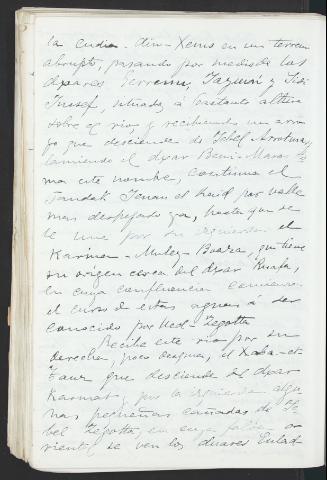 la cudia - din - Xems en un terreno
abrupto, pasando por medio de los
dxares Gerremu, Tazurin y Sidi
Yusef, situados á bastante altura
sobre el rio, y recibiendo un arro
yo que desciende de Yebel
lamiendo el dxar Beni - Mara
ma este nombre, continua el
Jandak Jenan el kaid por valle
mas despejado ya, hasta que se
le une por su izquierda el
Karman - Muley - Boaza, que tiene
su origen cerca del dxar Ruafa,
en cuya confluencia comienza
el curso de estas aguas á ser
conocido por Ued - Zegotta
Recibe este rio por su
derecha, poco despues, el Xaba - et
Taur que desciende del dxar
Karmat y por la izquierda algu
nas pequeñas cañadas de Ye
bel Zegotta, en cuya falda o
riental se ven los duares Eulad